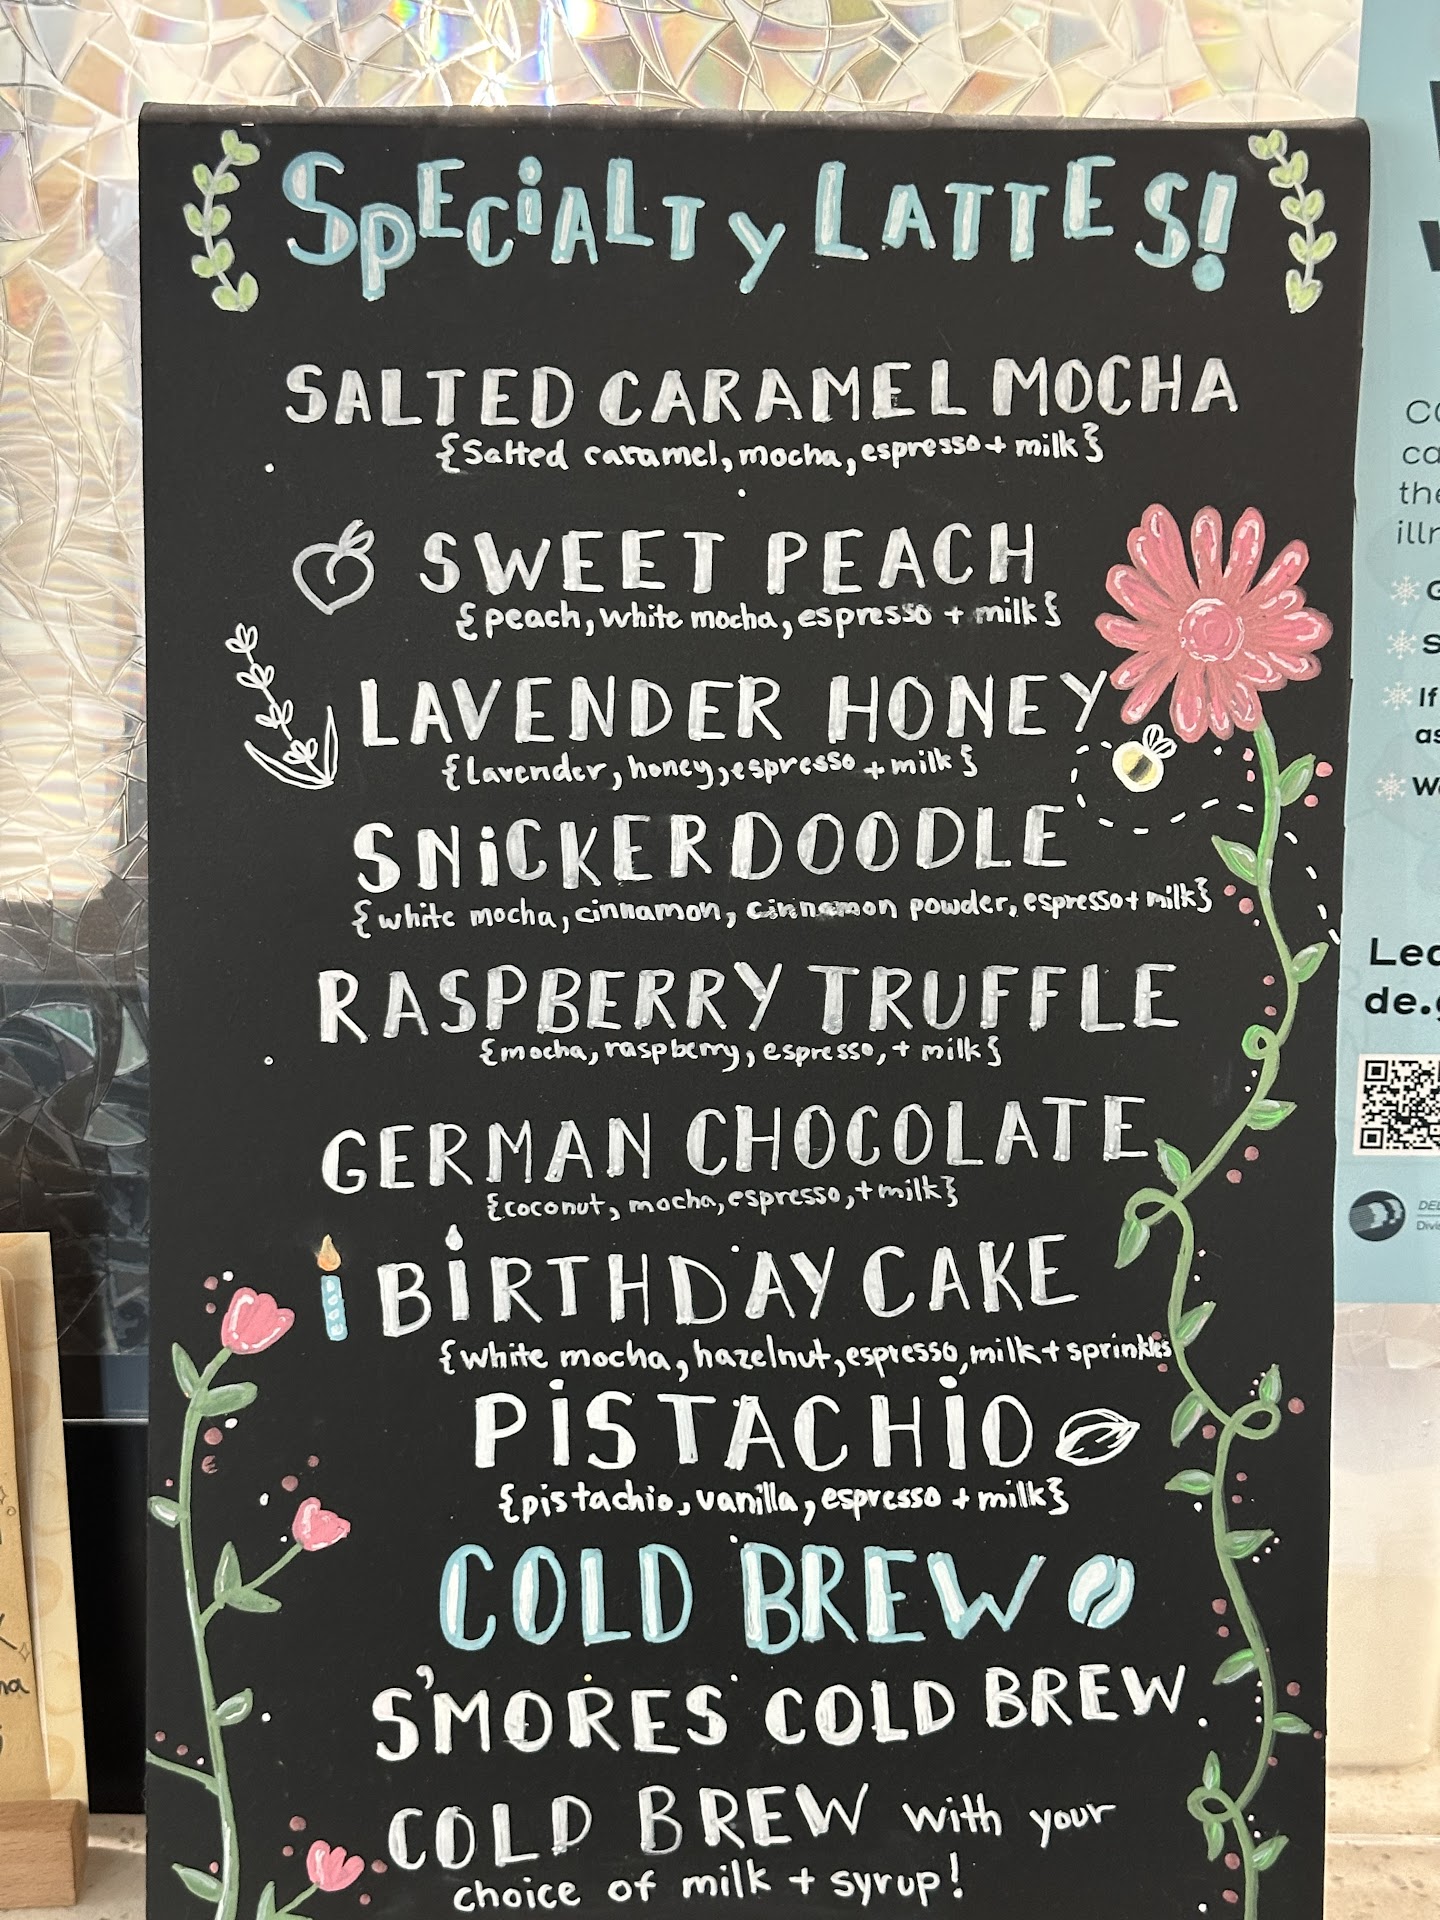 SpECiALTy LATTES!
SALTED CARAMEL MOCHA
{Salted caramel, mocha, espresso + milk}
SWEET PEACH
{peach, white mocha, espresso + milk}
LAVENDER HONEY
{Lavender, honey, espresso + milk}
SNiCKERDOODLE
{white mocha, cinnamon, cinnamon powder, espresso + milk}
RASPBERRY TRUFFLE
{mocha, raspberry, espresso, + milk}
GERMAN CHOCOLATE
{coconut, mocha, espresso, + milk}
BiRTHDAY CAKE
{white mocha, hazelnut, espresso, milk + sprinkles
PiSTACHiO
{pistachio, vanilla, espresso + milk}
COLD BREW
S'MORES COLD BREW
COLD BREW with your
choice of milk + syrup!
the
If
Lea
de.g
DEL
Divis